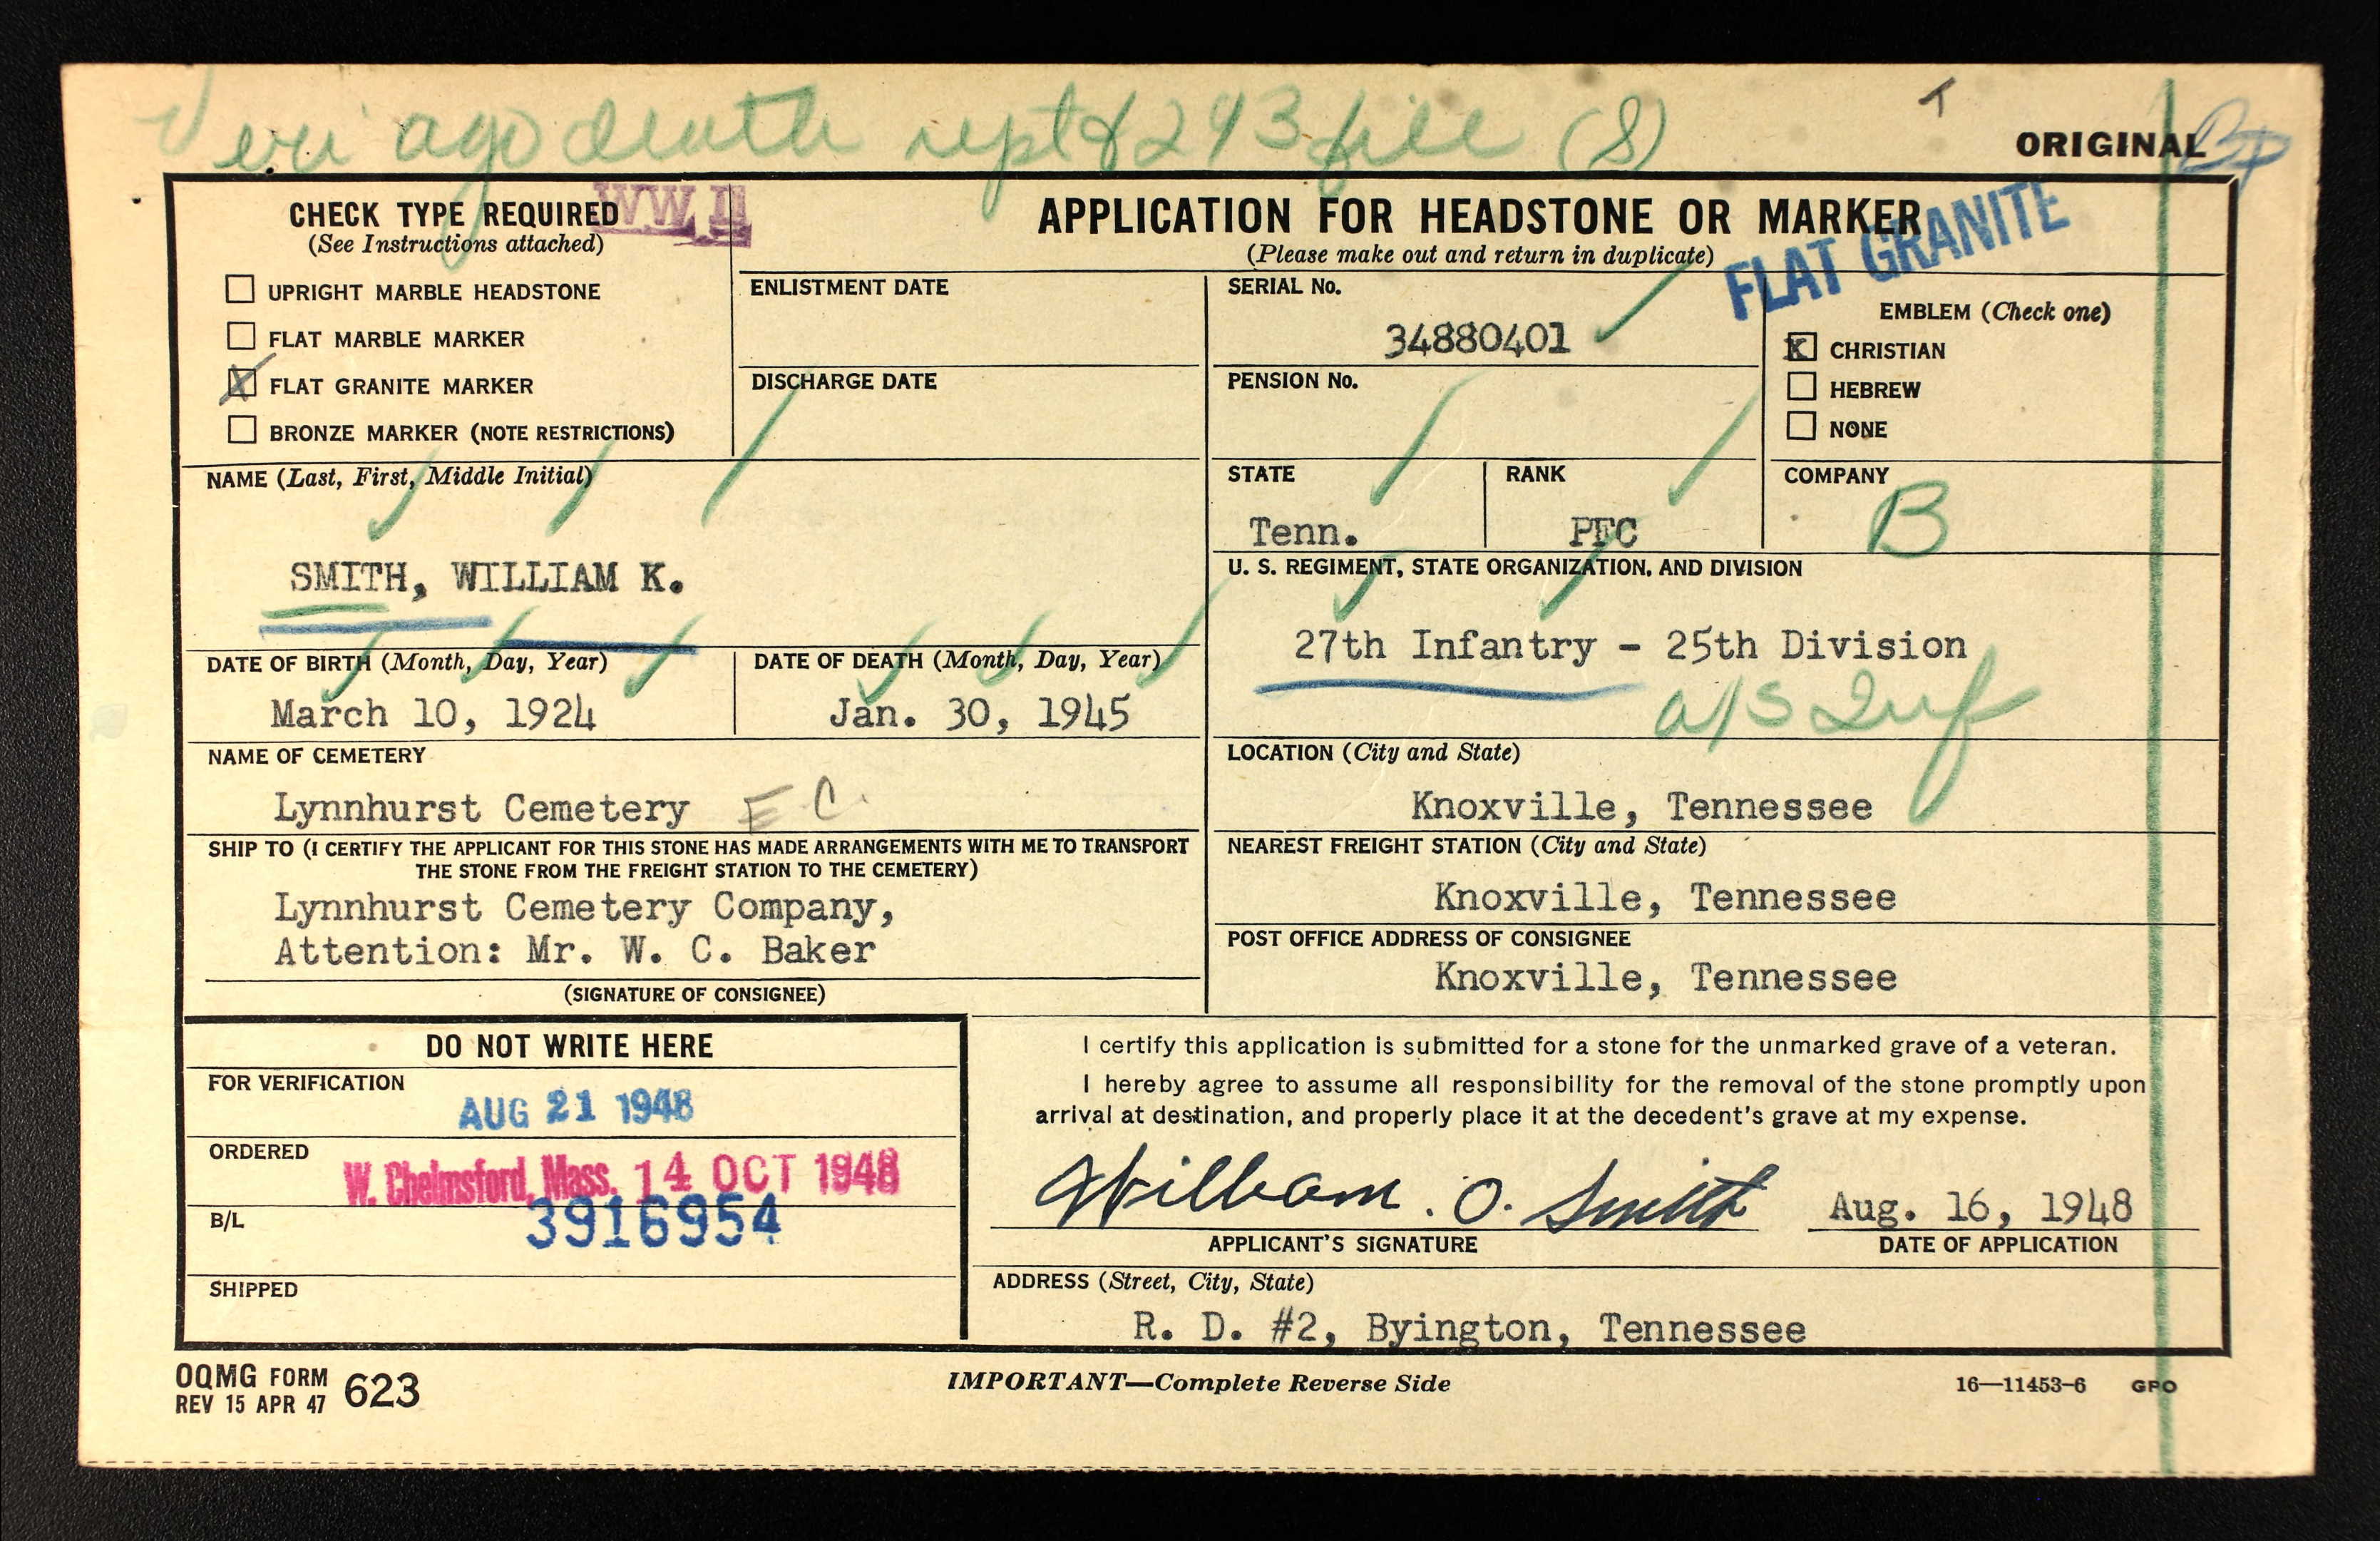 Veri ago death rept & 293 file (S)
T
ORIGINAL
CHECK TYPE REQUIRED
(See Instructions attached)
WW II
UPRIGHT MARBLE HEADSTONE
FLAT MARBLE MARKER
X FLAT GRANITE MARKER
BRONZE MARKER (NOTE RESTRICTIONS)
APPLICATION FOR HEADSTONE OR MARKER
(Please make out and return in duplicate)
FLAT GRANITE
ENLISTMENT DATE
DISCHARGE DATE
SERIAL No.
34880401
PENSION No.
EMBLEM (Check one)
X CHRISTIAN
HEBREW
NONE
NAME (Last, First, Middle Initial)
SMITH, WILLIAM K.
STATE
Tenn.
RANK
PFC
COMPANY
B
U. S. REGIMENT, STATE ORGANIZATION, AND DIVISION
27th Infantry - 25th Division
a/s Inf
DATE OF BIRTH (Month, Day, Year)
March 10, 1924
DATE OF DEATH (Month, Day, Year)
Jan. 30, 1945
NAME OF CEMETERY
Lynnhurst Cemetery E C.
LOCATION (City and State)
Knoxville, Tennessee
SHIP TO (I CERTIFY THE APPLICANT FOR THIS STONE HAS MADE ARRANGEMENTS WITH ME TO TRANSPORT
THE STONE FROM THE FREIGHT STATION TO THE CEMETERY)
Lynnhurst Cemetery Company,
Attention: Mr. W. C. Baker
(SIGNATURE OF CONSIGNEE)
NEAREST FREIGHT STATION (City and State)
Knoxville, Tennessee
POST OFFICE ADDRESS OF CONSIGNEE
Knoxville, Tennessee
DO NOT WRITE HERE
FOR VERIFICATION
AUG 21 1948
ORDERED
W. Chelmsford, Mass. 14 OCT 1948
B/L
3916954
SHIPPED
I certify this application is submitted for a stone for the unmarked grave of a veteran.
I hereby agree to assume all responsibility for the removal of the stone promptly upon
arrival at destination, and properly place it at the decedent's grave at my expense.
William. O. Smith
APPLICANT'S SIGNATURE
Aug. 16, 1948
DATE OF APPLICATION
ADDRESS (Street, City, State)
R. D. #2, Byington, Tennessee
OQMG FORM 623
REV 15 APR 47
IMPORTANT—Complete Reverse Side
16—11453-6 GPO